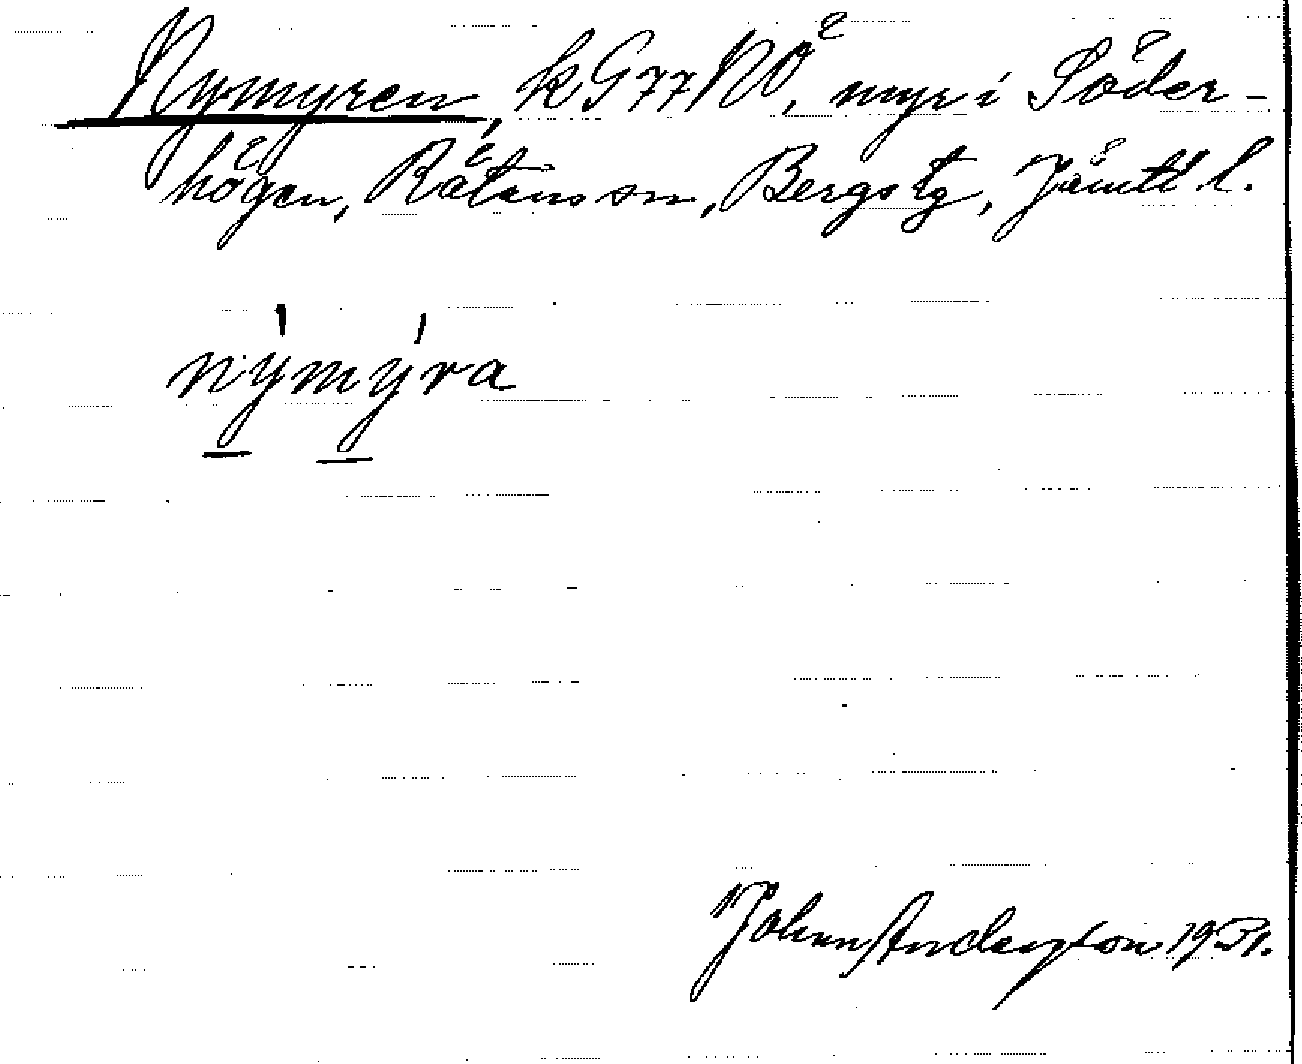 Nymyren, k G 77 NÖ, myr i Söder-
högen, Rätans sn, Bergs tg, Jämtl l.
nýmýra
Johan Andersson 1931.